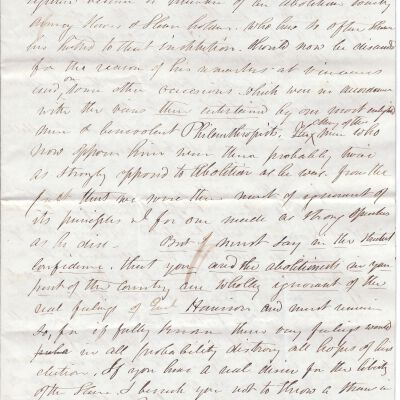 against
of an Abolition Society
among Slaves & Slave holders, who has so often shown
his hatred to that institution. Should now be discarded
for the reason of his remarks at Vincennes
and on some other occasions which were in accordance
with the views then entertained by our most enlightened
men & benevolent Philanthropists. Many of the men who
now oppose him were then probably twice
as strongly opposed to Abolition as he was. from the
fact that we were then most of ignorant of
its principles & I for one made as strong Speeches
as he did - But I must say in the strictest
confidence, that you and the abolitionists in your
part of the Country are wholly ignorant of the
real feelings of Genl Harrison and must remain
so, for if fully known these very feelings would
in all probability destroy all hopes of his
election. If you have a real desire for the liberty
of the Slave, I beseech you not to throw a straw in